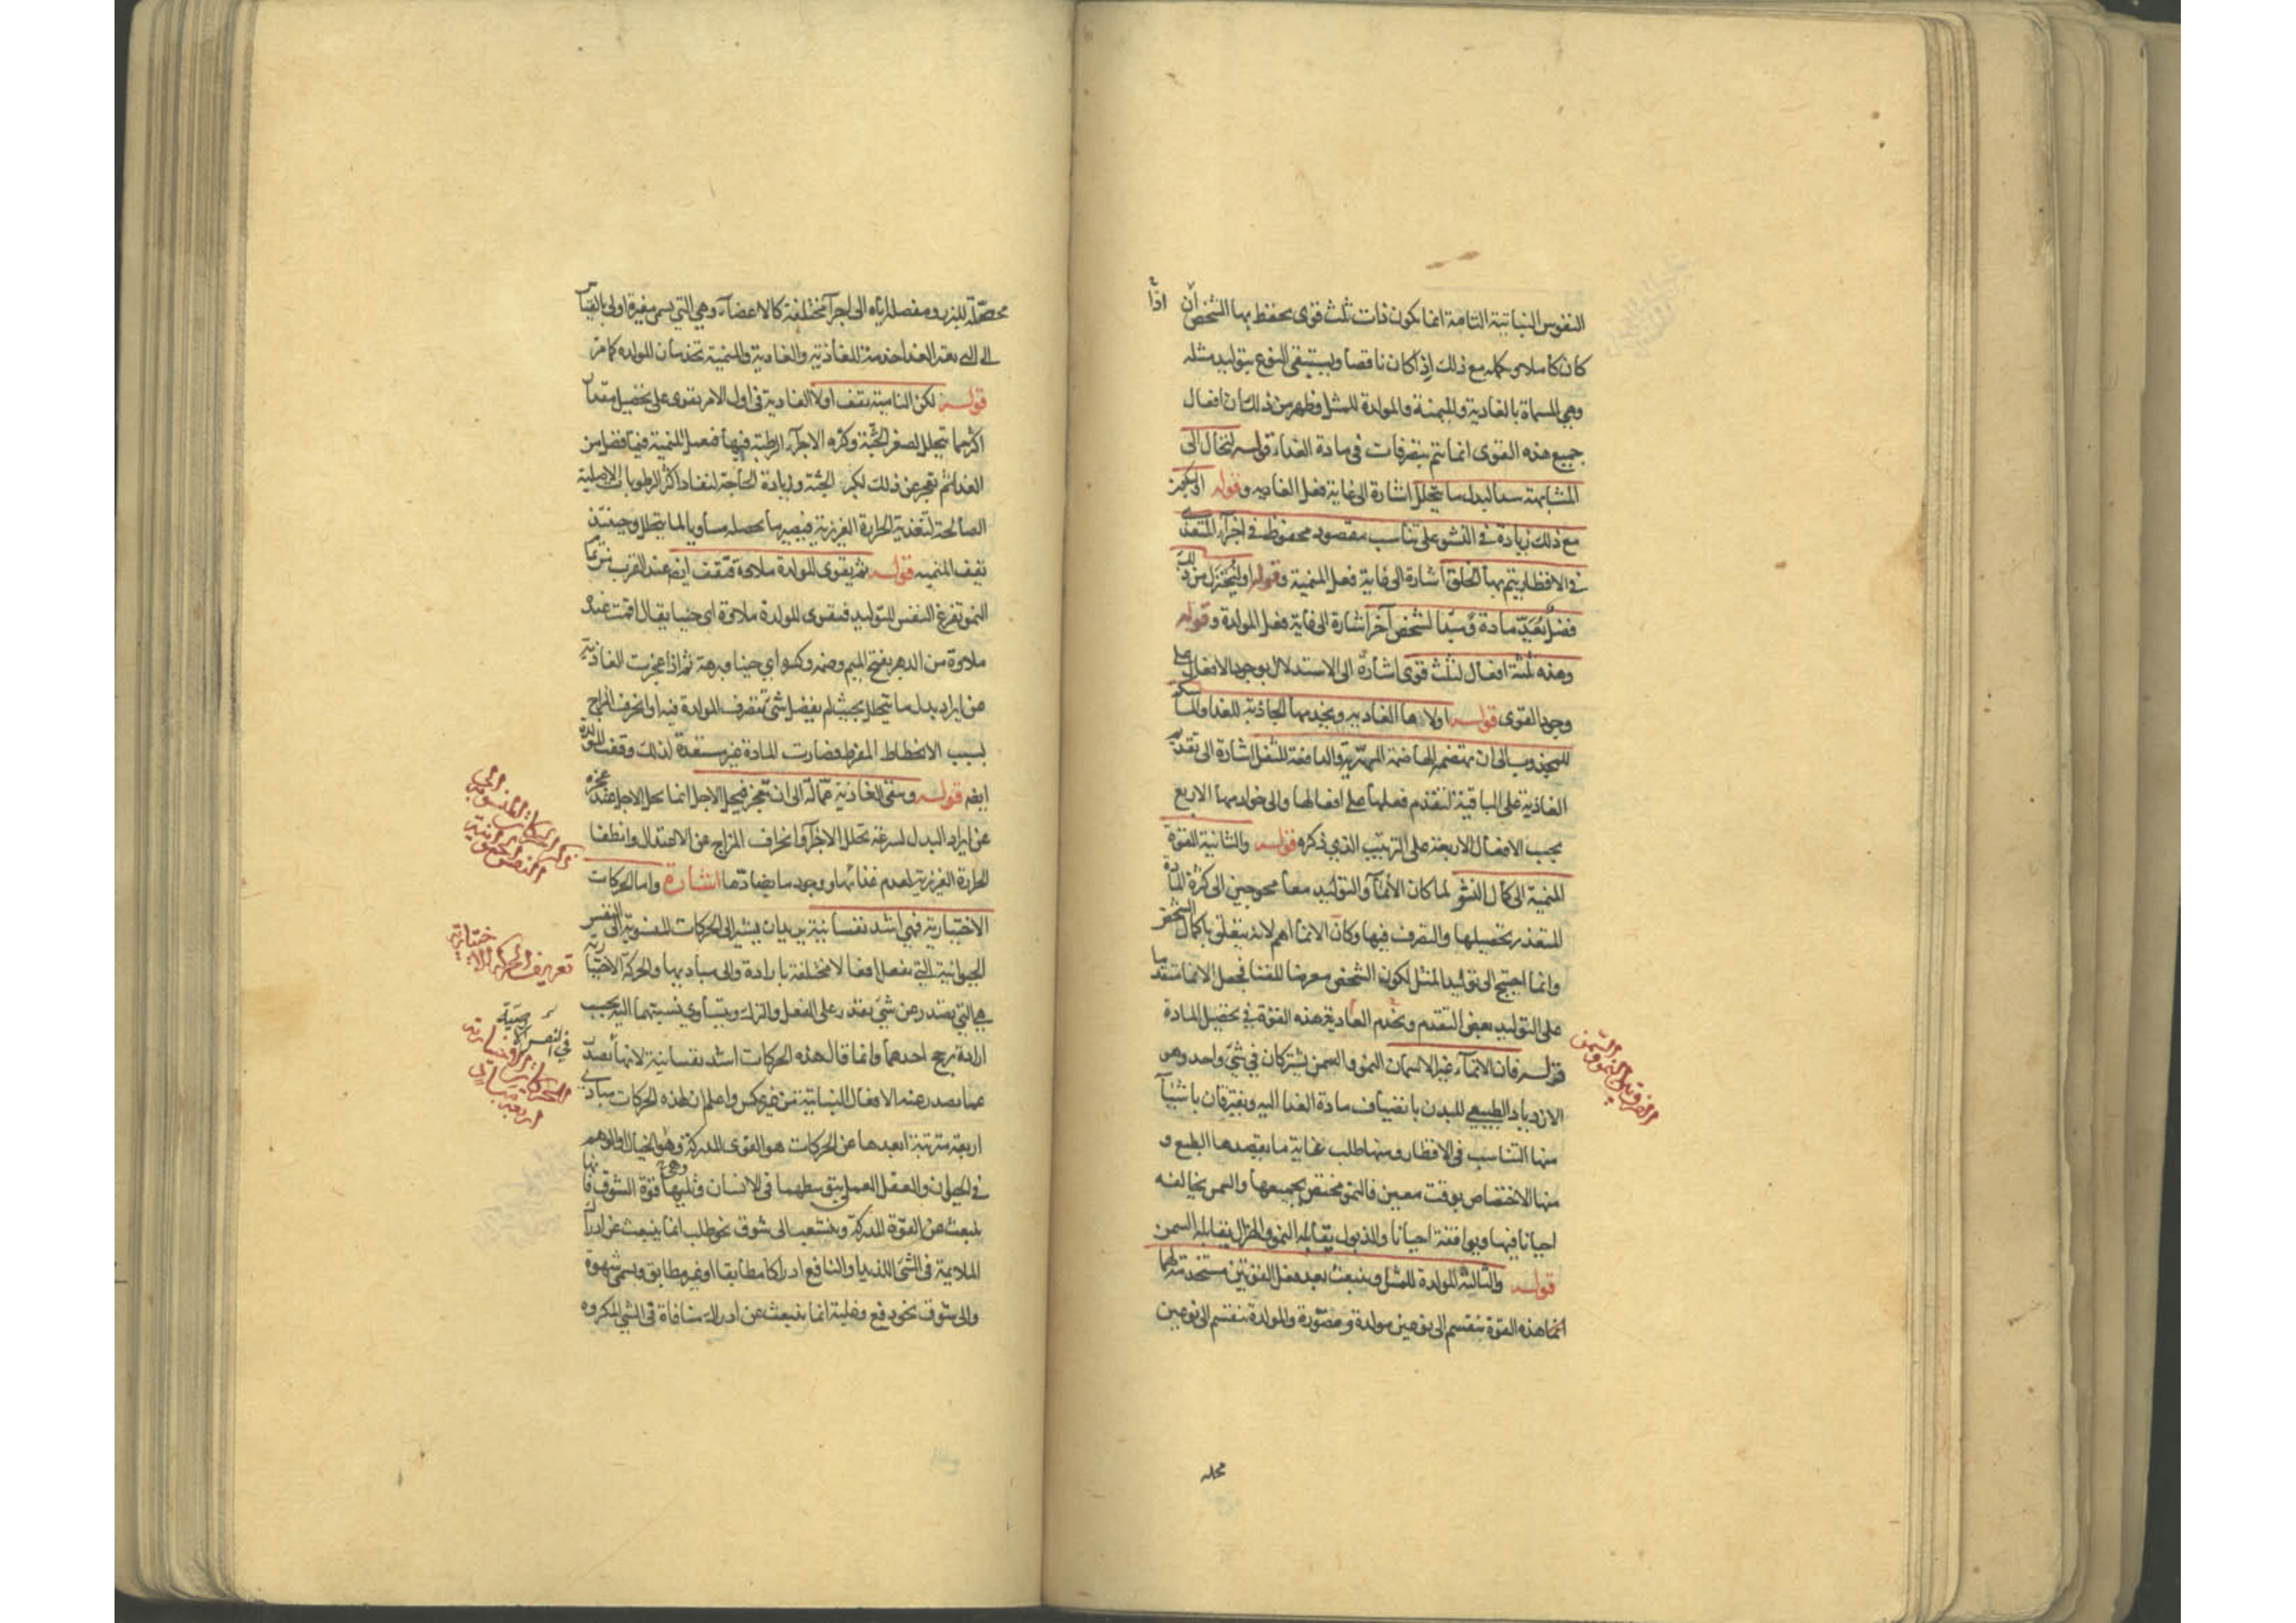 النفوس النباتية التامة انما يكون ذات ثلث قوى يحفظ بها الشخص ان اذا
كان كاملا وتكمله مع ذلك اذا كان ناقصا ويستبقى النوع بتوليد مثله
وهي المسماة بالغادية والمنمية والمولدة للمثل وظهر من ذلك ان افعال
جميع هذه القوى انما تتم بتصرفات في مادة الغذاء قوله لتحال الى
المشابهة سدا لبدل ما يتحلل اشارة الى غاية فعل الغاديه وقوله او لتكون
مع ذلك زيادة في النشو على تناسب مقصود محفوظ في اجزآء المتغذى
في الاقطار يتم بها الخلق اشارة الى غاية فعل المنمية وقوله او ليختزل من ذلك
فضل يعد مادة ومبدا لشخص آخر اشارة الى غاية فعل المولدة وقوله
وهذه ثلثة افعال لثلث قوى اشارة الى الاستدلال بوجود الافعال على
وجود القوى قوله اولاها الغاديه ويخدمها الجاذبة للغدا والماسكة
للمجذوب الى ان تهضمه الهاضمة المهرية والدافعة للثفل اشارة الى تقدم
الغاذية على الباقية لتقدم فعلها على افعالها والى خوادمها الاربع
بحسب الافعال الاربعة على الترتيب الذي ذكره قوله والثانية القوة
المنمية الى كمال النشو لما كان الأنمآ والتوليد معا محوجين الى كثرة المادة
المتعذر تحصيلها والتصرف فيها وكان الانمآ اهم لانه يتعلق باكمال الشخص
وانما احتيج الى توليد المثل لكون الشخص معرضا للفنا فجعل الانما متقدما
على التوليد بعض التقدم وتخدم الغادية هذه القوة في تحصيل المادة
قوله فان الانمآء غير الاسمان النمو والسمن يشتركان في شي واحد وهو
الازدياد الطبيعي للبدن بانضياف مادة الغدا اليه ويفترقان باشيآ
منها التناسب في الاقطار ومنها طلب غاية ما يقصدها الطبع و
منها الاختصاص بوقت معين فالنمو مختص بجميعها والسمن يخالفه
احيانا فيها ويوافقه احيانا والذبول يقابله النمو والهزال يقابله السمن
قوله والثالثة المولدة للمثل وينبعث بعد فعل القوتين مستخدمة لهما
انما هذه القوة ينقسم الى نوعين مولدة ومصورة والمولدة تنقسم الى نوعين
الفرق بين النمو والسمن
محصلة
محصلة للبذر ومفصلة اياه الى اجزآء مختلفة كالاعضآء وهي التي تسمى مغيرة اولى بالقياس
الى التي تغير الغدا خدمة للغاذية والغادية والمنمية تخدمان المولده كما مر
قوله لكن النامية تقف اولا الغادية في اول الامر تقوى على تحصيل مقدار
اكثر مما يتحلل لصغر الجثة وكثرة الاجزآء الرطبة فيها فتعمل المنمية فيما فضل من
الغدا ثم تعجز عن ذلك لكبر الجثة وزيادة الحاجة لنفاد اكثر الرطوبات الاصلية
الصالحة لتغذية الحرارة الغريزية فيصير ما يحصله مساويا لما يتحلل وحينئذ
تقف المنميه قوله ثم يقوى المولدة ملاوة فتقف ايضا عند القرب من تمام
النمو تفرغ النفس للتوليد فتقوى المولدة ملاوة اي حينا يقال اقمت عنده
ملاوة من الدهر بفتح الميم وضمه وكسره اي حينا وبرهة ثم اذا عجزت الغاذية
عن ايراد بدل ما يتحلل بحيث لم يفضل شئ تتصرف المولدة فيه او انحرف المزاج
بسبب الانحطاط المفرط فصارت المادة غير مستعدة لذلك وقفت المولدة
ايضا قوله وتبقى الغاذية عمالة الى ان تعجز فيحل الاجل انما يحل الاجل عند عجزه
عن ايراد البدل لسرعة تحلل الاجزآء وانحراف المزاج عن الاعتدال وانطفا
الحرارة الغريزية لعدم غذائها ووجود ما يضادها اشارة واما الحركات
الاختيارية فهي اشد نفسانية يريد ان يشير الى الحركات المنسوبة الى النفس
الحيوانية التي تفعل افعالا مختلفة بارادة والى مباديها والحركة الاختيارية
هي التي تصدر عن شئ يقدر على الفعل والترك ويتساوى نسبتهما اليه بحسب
ارادة يرجح احدهما وانما قال هذه الحركات اشد نفسانية لانها تصدر
عما يصدر عنه الافعال النباتية من غير عكس واعلم ان لهذه الحركات مبادى
اربعة مترتبة ابعدها عن الحركات هو القوى المدركة وهو الخيال او الوهم
في الحيوان والعقل العملي بتوسطهما في الانسان وتليها قوة الشوق وهي
تنبعث عن القوة المدركة وتنشعب الى شوق نحو طلب انما ينبعث عن ادراك
الملايمة في الشئ اللذيذ او النافع ادراكا مطابقا او غير مطابق ويسمى شهوة
والى شوق نحو دفع وغلبة انما ينبعث عن ادراك منافاة في الشئ المكروه
تعريف الحركة الاختيارية